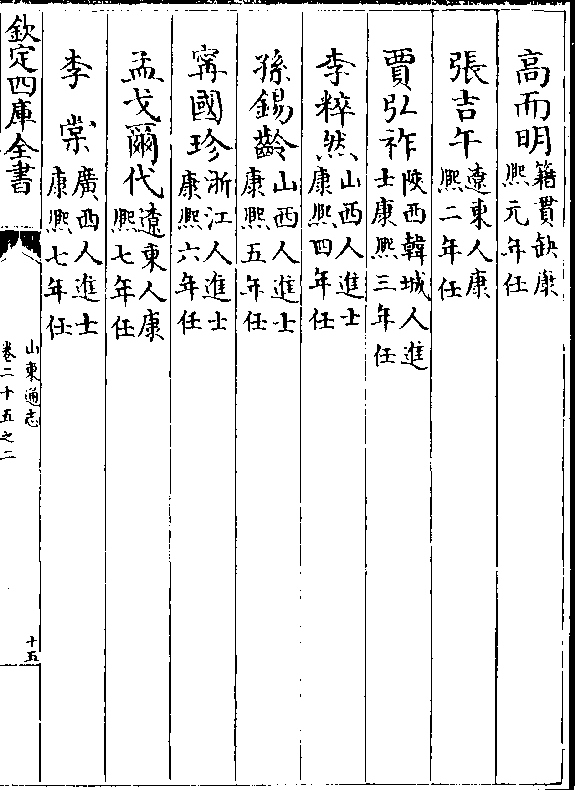 高而明籍貫缺康熙元年任
張吉午遼東人康熙二年任
賈弘祚陜西韓城人進士康熙三年任
李粹然山西人進士康熙四年任
孫錫齡山西人進士康熙五年任
甯國珍浙江人進士康熙六年任
孟戈爾代遼東人康熙七年任
李棠廣西人進士康熙七年任
欽定四庫全書
山東通志
卷二十五之二
十五